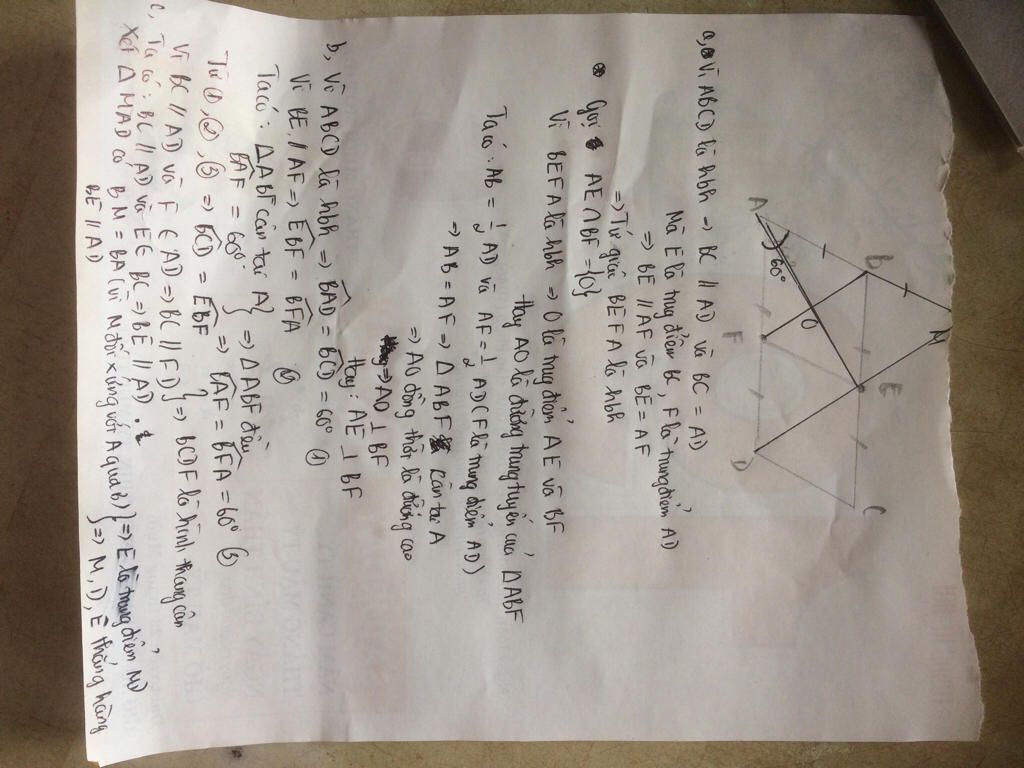 A
B
M
60°
O
E
F
D
C
a, Vì ABCD là hbh ⇒ BC // AD và BC = AD
Mà E là trung điểm BC, F là trung điểm AD
⇒ BE // AF và BE = AF
⇒ Tứ giác BEFA là hbh
Gọi AE ∩ BF = {O}
Vì BEFA là hbh ⇒ O là trung điểm AE và BF
Hay AO là đường trung tuyến của ΔABF
Ta có: AB = 1/2 AD và AF = 1/2 AD (F là trung điểm AD)
⇒ AB = AF ⇒ ΔABF cân tại A
⇒ AO đồng thời là đường cao
⇒ AO ⊥ BF
Hay: AE ⊥ BF
b, Vì ABCD là hbh ⇒ BAD = BCD = 60° ①
Vì BE // AF ⇒ EBF = BFA ②
Ta có: ΔABF cân tại A } ⇒ ΔABF đều
BAF = 60° ⇒ BAF = BFA = 60° ③
Từ ①, ②, ③ ⇒ BCD = EBF
Vì BC // AD và F ∈ AD ⇒ BC // FD } ⇒ BCDF là hình thang cân
c, Ta có: BC // AD và E ∈ BC ⇒ BE // AD.
Xét Δ MAD có BM = BA (vì M đối xứng với A qua B) } ⇒ E là trung điểm MD
BE // AD } ⇒ M, D, E thẳng hàng